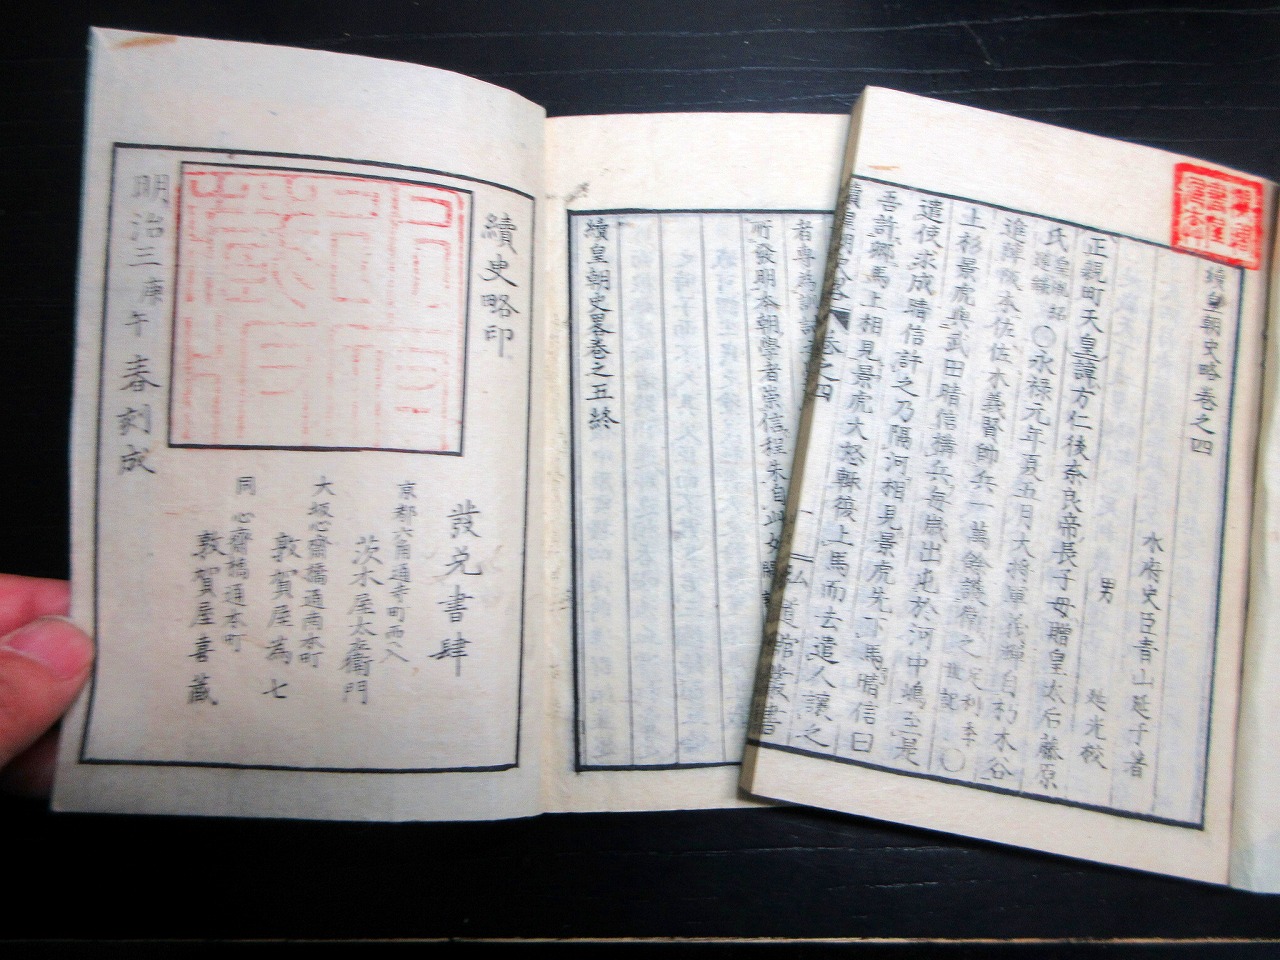 續皇朝史略卷之四
水府史臣青山延于著
男 延光校
正親町天皇諱方仁後奈良帝長子母贈皇太后藤原
氏〇永禄元年夏五月大將軍義輝自朽木谷
進陣坂本佐佐木義賢帥兵一萬餘護衛之足利季世記〇
上杉景虎與武田晴信構兵每歲出屯於河中嶋至是
遣使求成晴信許之乃隔河相見景虎先下馬晴信曰
吾許郷馬上相見景虎大怒輙復上馬而去遣人讓之
續皇朝史畧 卷之四 一 弘道館叢書
所發明本朝學者崇信程朱自此
續皇朝史畧卷之五終
續史略印
發兌書肆
京都六角通寺町西入
茨木屋太左衛門
大坂心齋橋通南本町
敦賀屋為七
同 心齋橋通本町
敦賀屋喜藏
明治三庚午春刻成